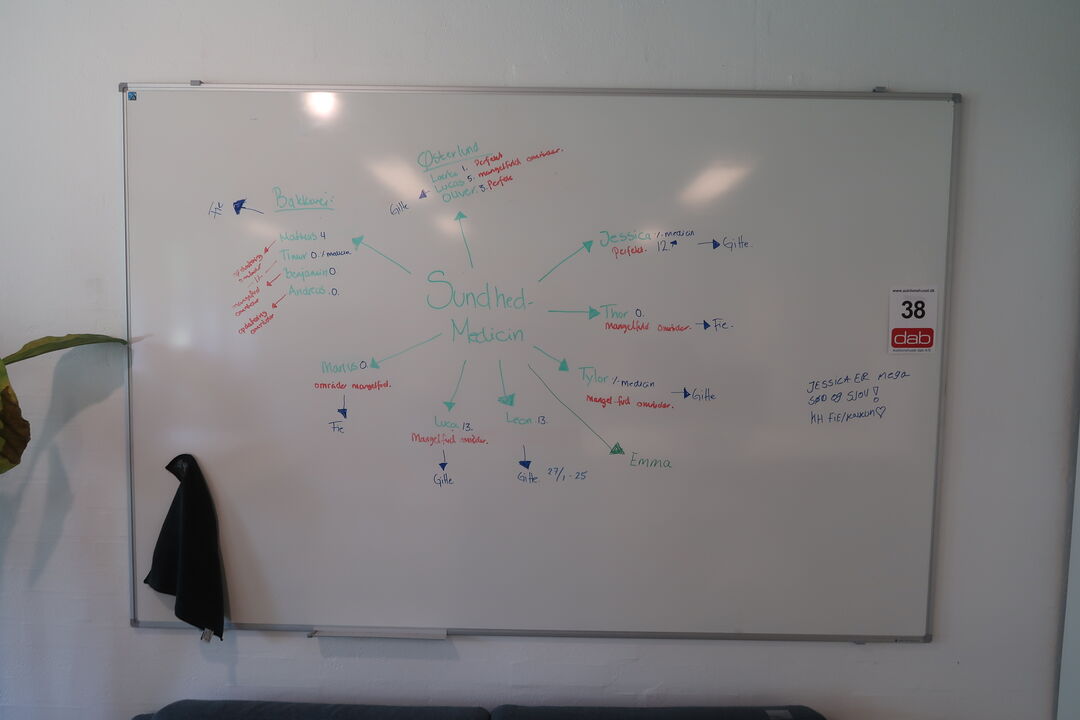 Østerlund
Lærke 1. Perfekt
Lucas 5. mangelfuld områder.
Oliver 3. Perfekt
Gitte
Bakkevej:
Fie
Mathias 4
Timur 0 ./. medicin.
benjamin 0
Andreas .0.
opdatering områder
mangelfuld områder
opdatering områder
Sundhed-
Medicin
Jessica ./. medicin
Perfekt. 12.
Gitte.
Thor 0.
Mangelfuld områder.
Fie.
Tylor ./. medicin
Mangelfuld områder.
Gitte
Emma
Leon 13.
Gitte. 27/1-25
Luca 13.
Mangelfuld områder.
Gitte
Marius 0
områder mangelfuld.
Fie
www.auktionshuset.dk
38
dab
JESSICA ER mega
SØD og SJOV!
KH FiE/